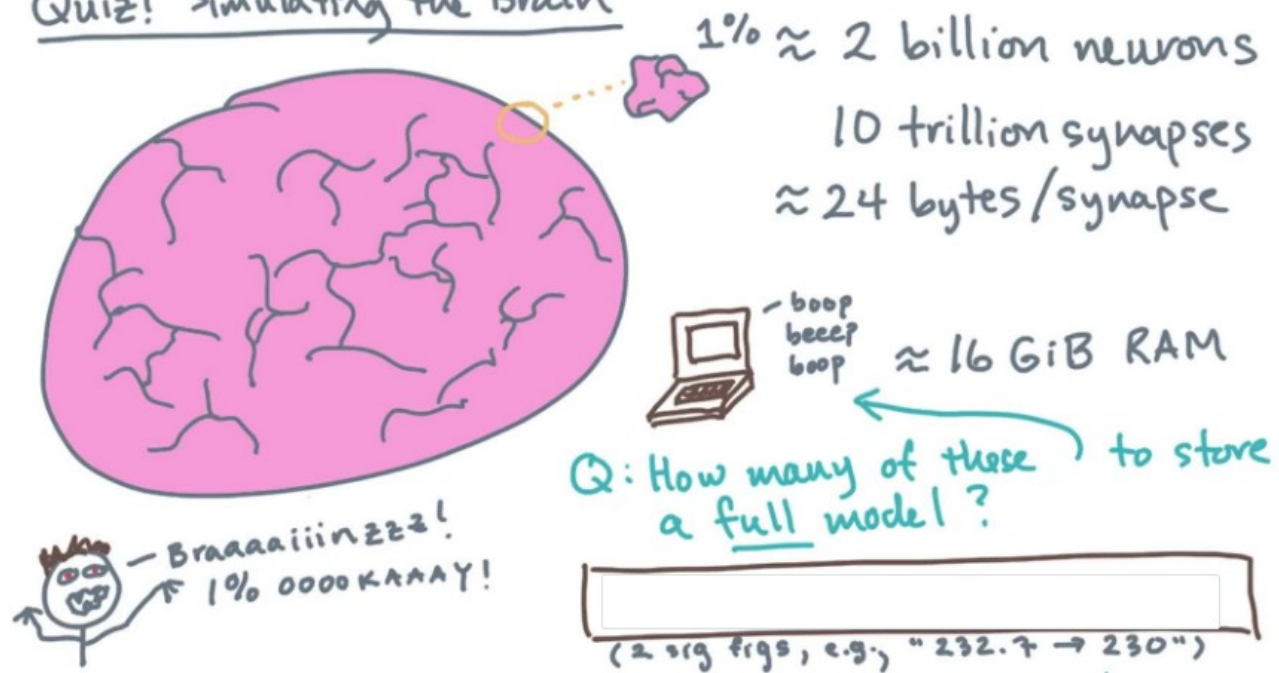 Quiz! Simulating the Brain
1% ≈ 2 billion neurons
10 trillion synapses
≈ 24 bytes/synapse
boop
beeep
boop
≈ 16 GiB RAM
Q: How many of these to store
a full model?
Braaaaiiinzzz!
1% ooooKAAAY!
(2 sig figs, e.g., "232.7 → 230")